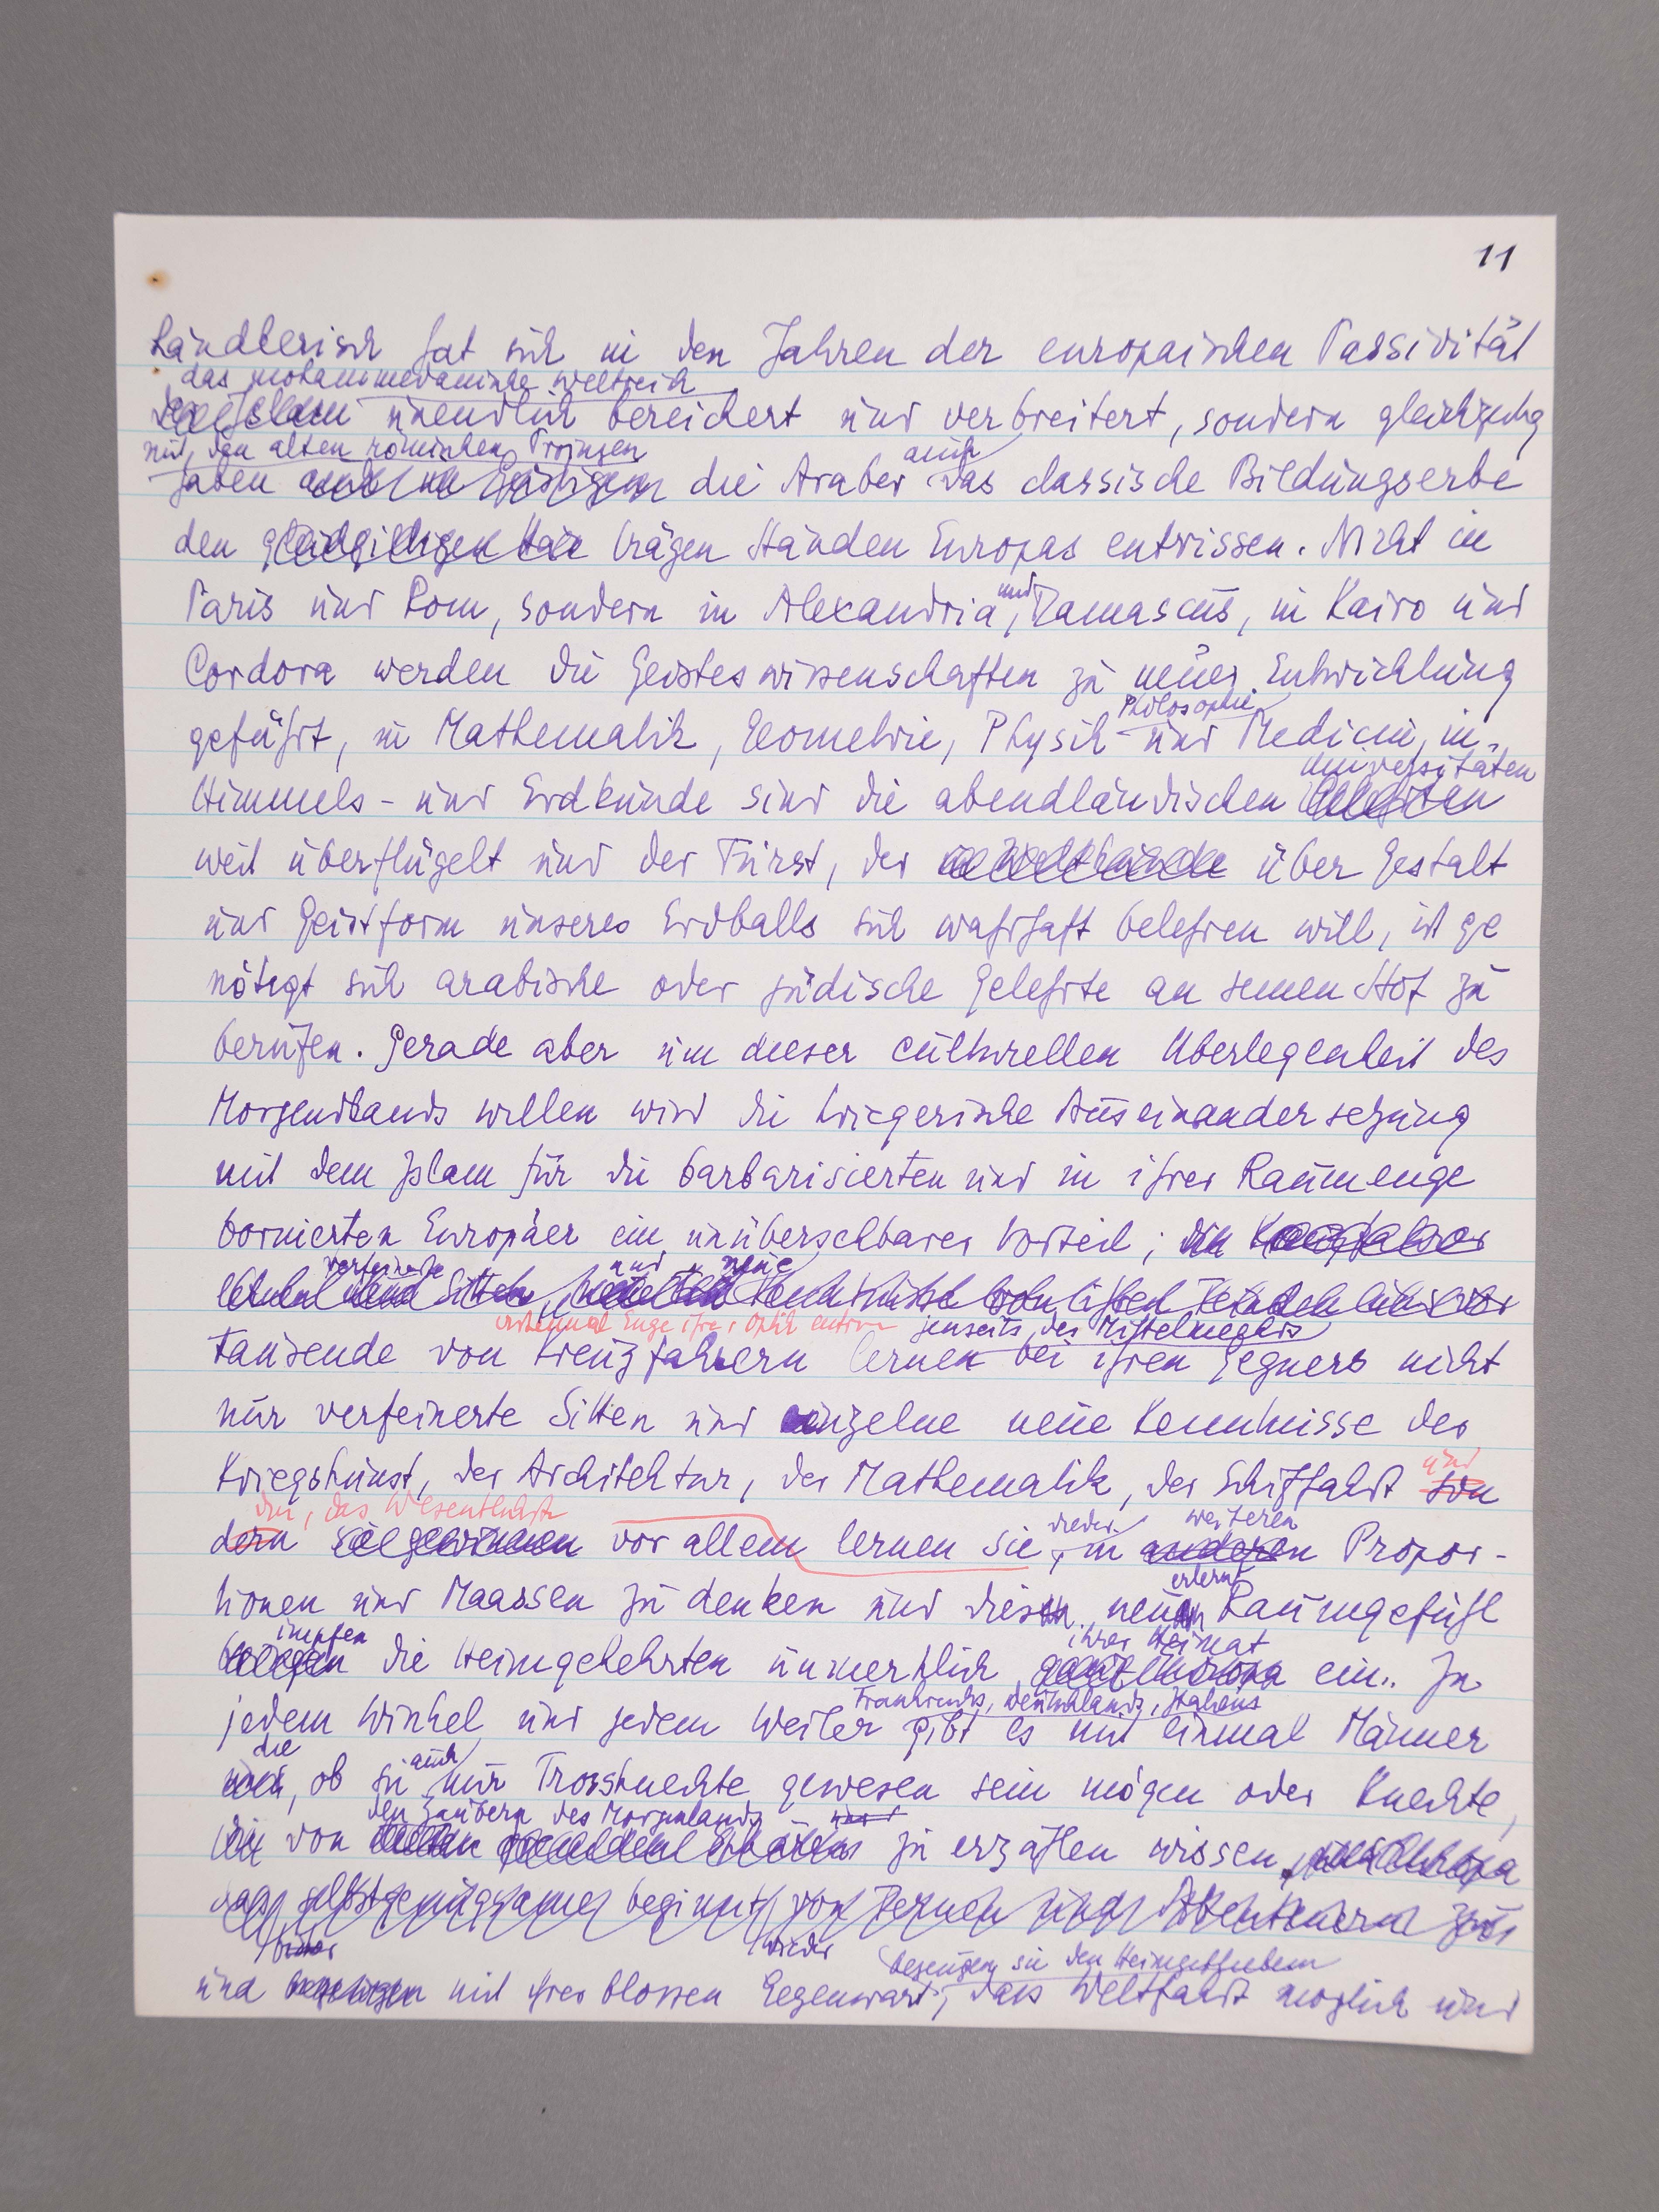 11
Ländlerisch hat sich in den Jahren der europäischen Passivität
das mohammedanische Weltreich
unendlich bereichert und verbreitert, sondern gleichzeitig
mit den alten römischen Provinzen
auch
haben die Araber das classische Bildungserbe
den trägen Händen Europas entrissen. Nicht in
und
Paris und Rom, sondern in Alexandria, Damascus, in Kairo und
Cordova werden die Geisteswissenschaften zu neuer Entwicklung
Philosophie
geführt, in Mathematik, Geometrie, Physik und Medicin, in
Universitäten
Himmels- und Erdkunde sind die abendländischen
weit überflügelt und der Fürst, der über Gestalt
und Geistform unseres Erdballs sich wahrhaft belehren will, ist ge
nötigt sich arabische oder jüdische Gelehrte an seinen Hof zu
berufen. Gerade aber um dieser culturellen Überlegenheit des
Morgenlands willen wird die kriegerische Auseinandersetzung
mit dem Islam für die barbarisierten und in ihrer Raumenge
bornierten Europäer ein unübersehbarer Vorteil;
verfeinerte
und neue
Sitten
Enge ihrer Optik
jenseits des Mittelmeers
Tausende von Kreuzfahrern lernen bei ihren Gegnern nicht
nur verfeinerte Sitten und einzelne neue Kenntnisse der
und
Kriegskunst, der Architektur, der Mathematik, der Schiffahrt son
das Wesentlichste
wieder weiteren
dern sie gewinnen vor allem lernen sie, in anderen Propor-
erlernt
tionen und Maassen zu denken und dieses neue Raumgefühl
impfen
ihrer Heimat
die Heimgekehrten unmerklich ein. In
Frankreichs, Deutschlands, Italiens
jedem Winkel und jedem Weiler gibt es mit einmal Männer
die
auch
ob sie nur Trossknechte gewesen sein mögen oder Knechte,
den Zaubern des Morgenlands
die von zu erzählen wissen
selbstgenügsame beginnt von Fernen und Abenteuern zu
wieder
bezeugen sie den Heimgebliebenen
und mit ihrer blossen Gegenwart, dass Weltfahrt möglich und